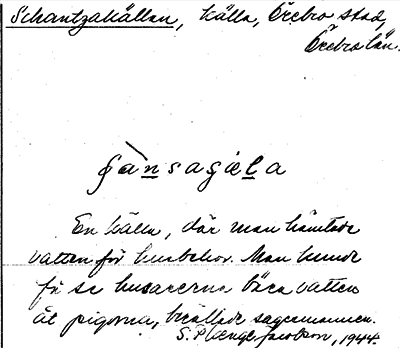 Schantzakällan, källa, Örebro stad,
Örebro län.
En källa, där man hämtade
vatten för husbehov. Man kunde
få se husarerna bära vatten
åt pigorna, berättade sagesmannen.
S. Jacobson, 1944